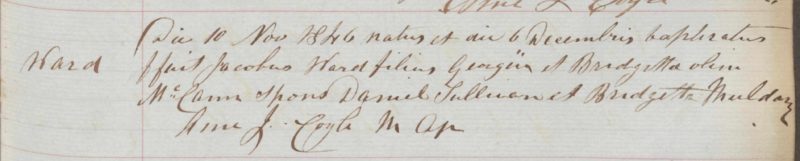 Die 10 Nov 1846 natus et die 6 Decembris baptizatus
Ward fuit Jacobus Ward filius Georgii et Bridgetta olim
McCann Spons Daniel Sullivan et Bridgetta Muldary
J. Coyle M Ap